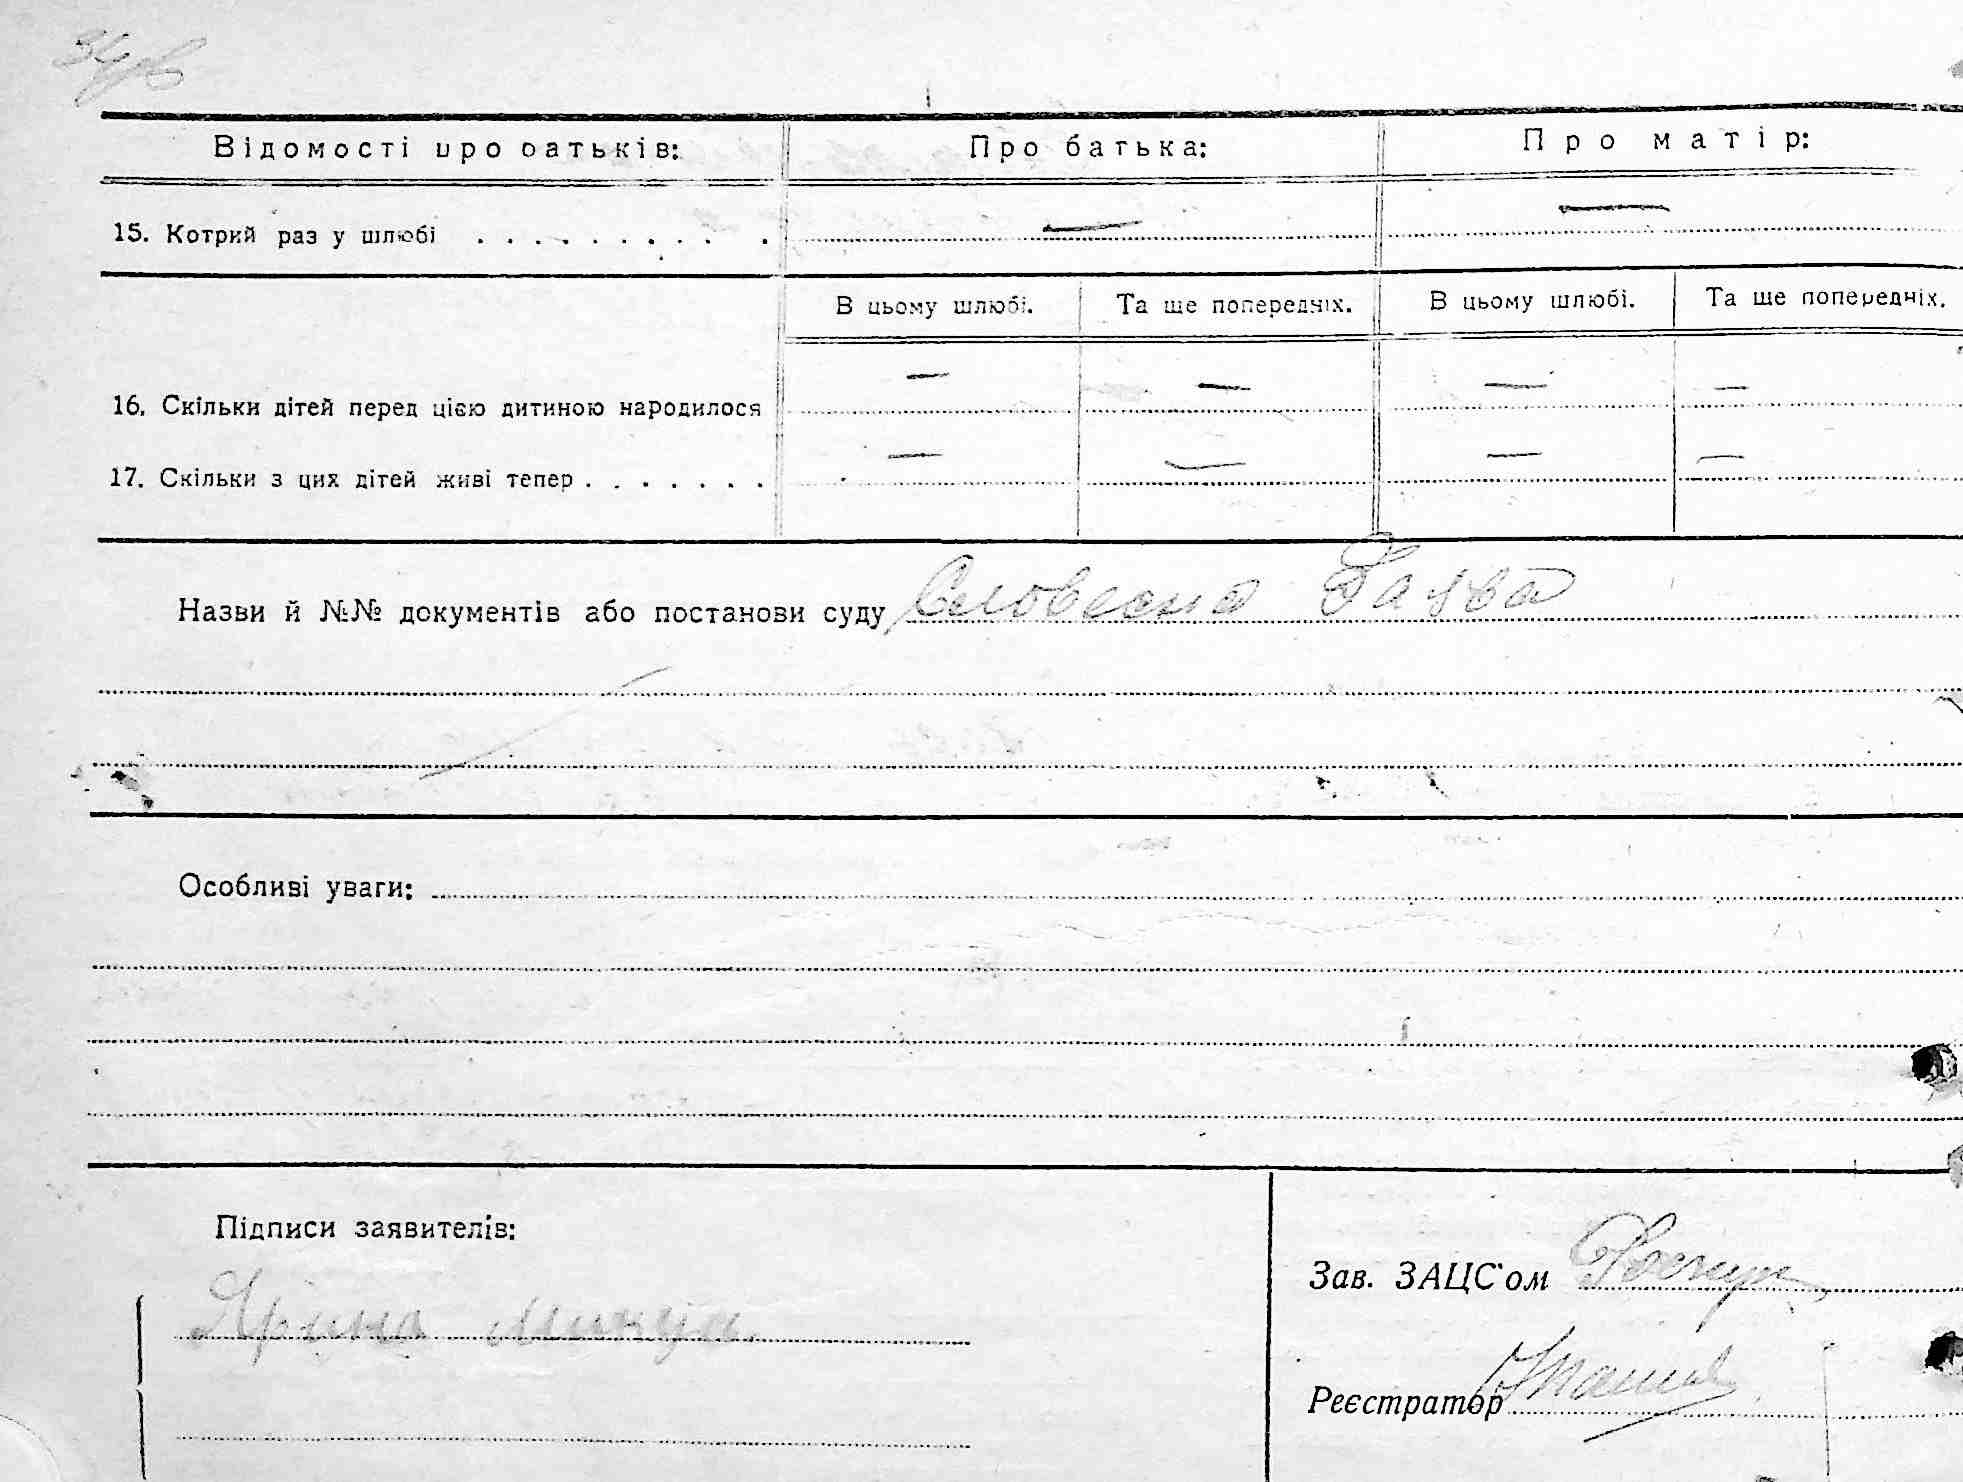 Відомості про батьків: Про батька: Про матір:
15. Котрий раз у шлюбі . . . . . . . . . . — —
В цьому шлюбі. Та ще попередніх. В цьому шлюбі. Та ще попередніх.
16. Скільки дітей перед цією дитиною народилося — — — —
17. Скільки з цих дітей живі тепер . . . . . . . — — — —
Назви й №№ документів або постанови суду Словесна Заява
Особливі уваги:
Підписи заявителів:
Зав. ЗАЦС'ом
Ярина
Реєстратор